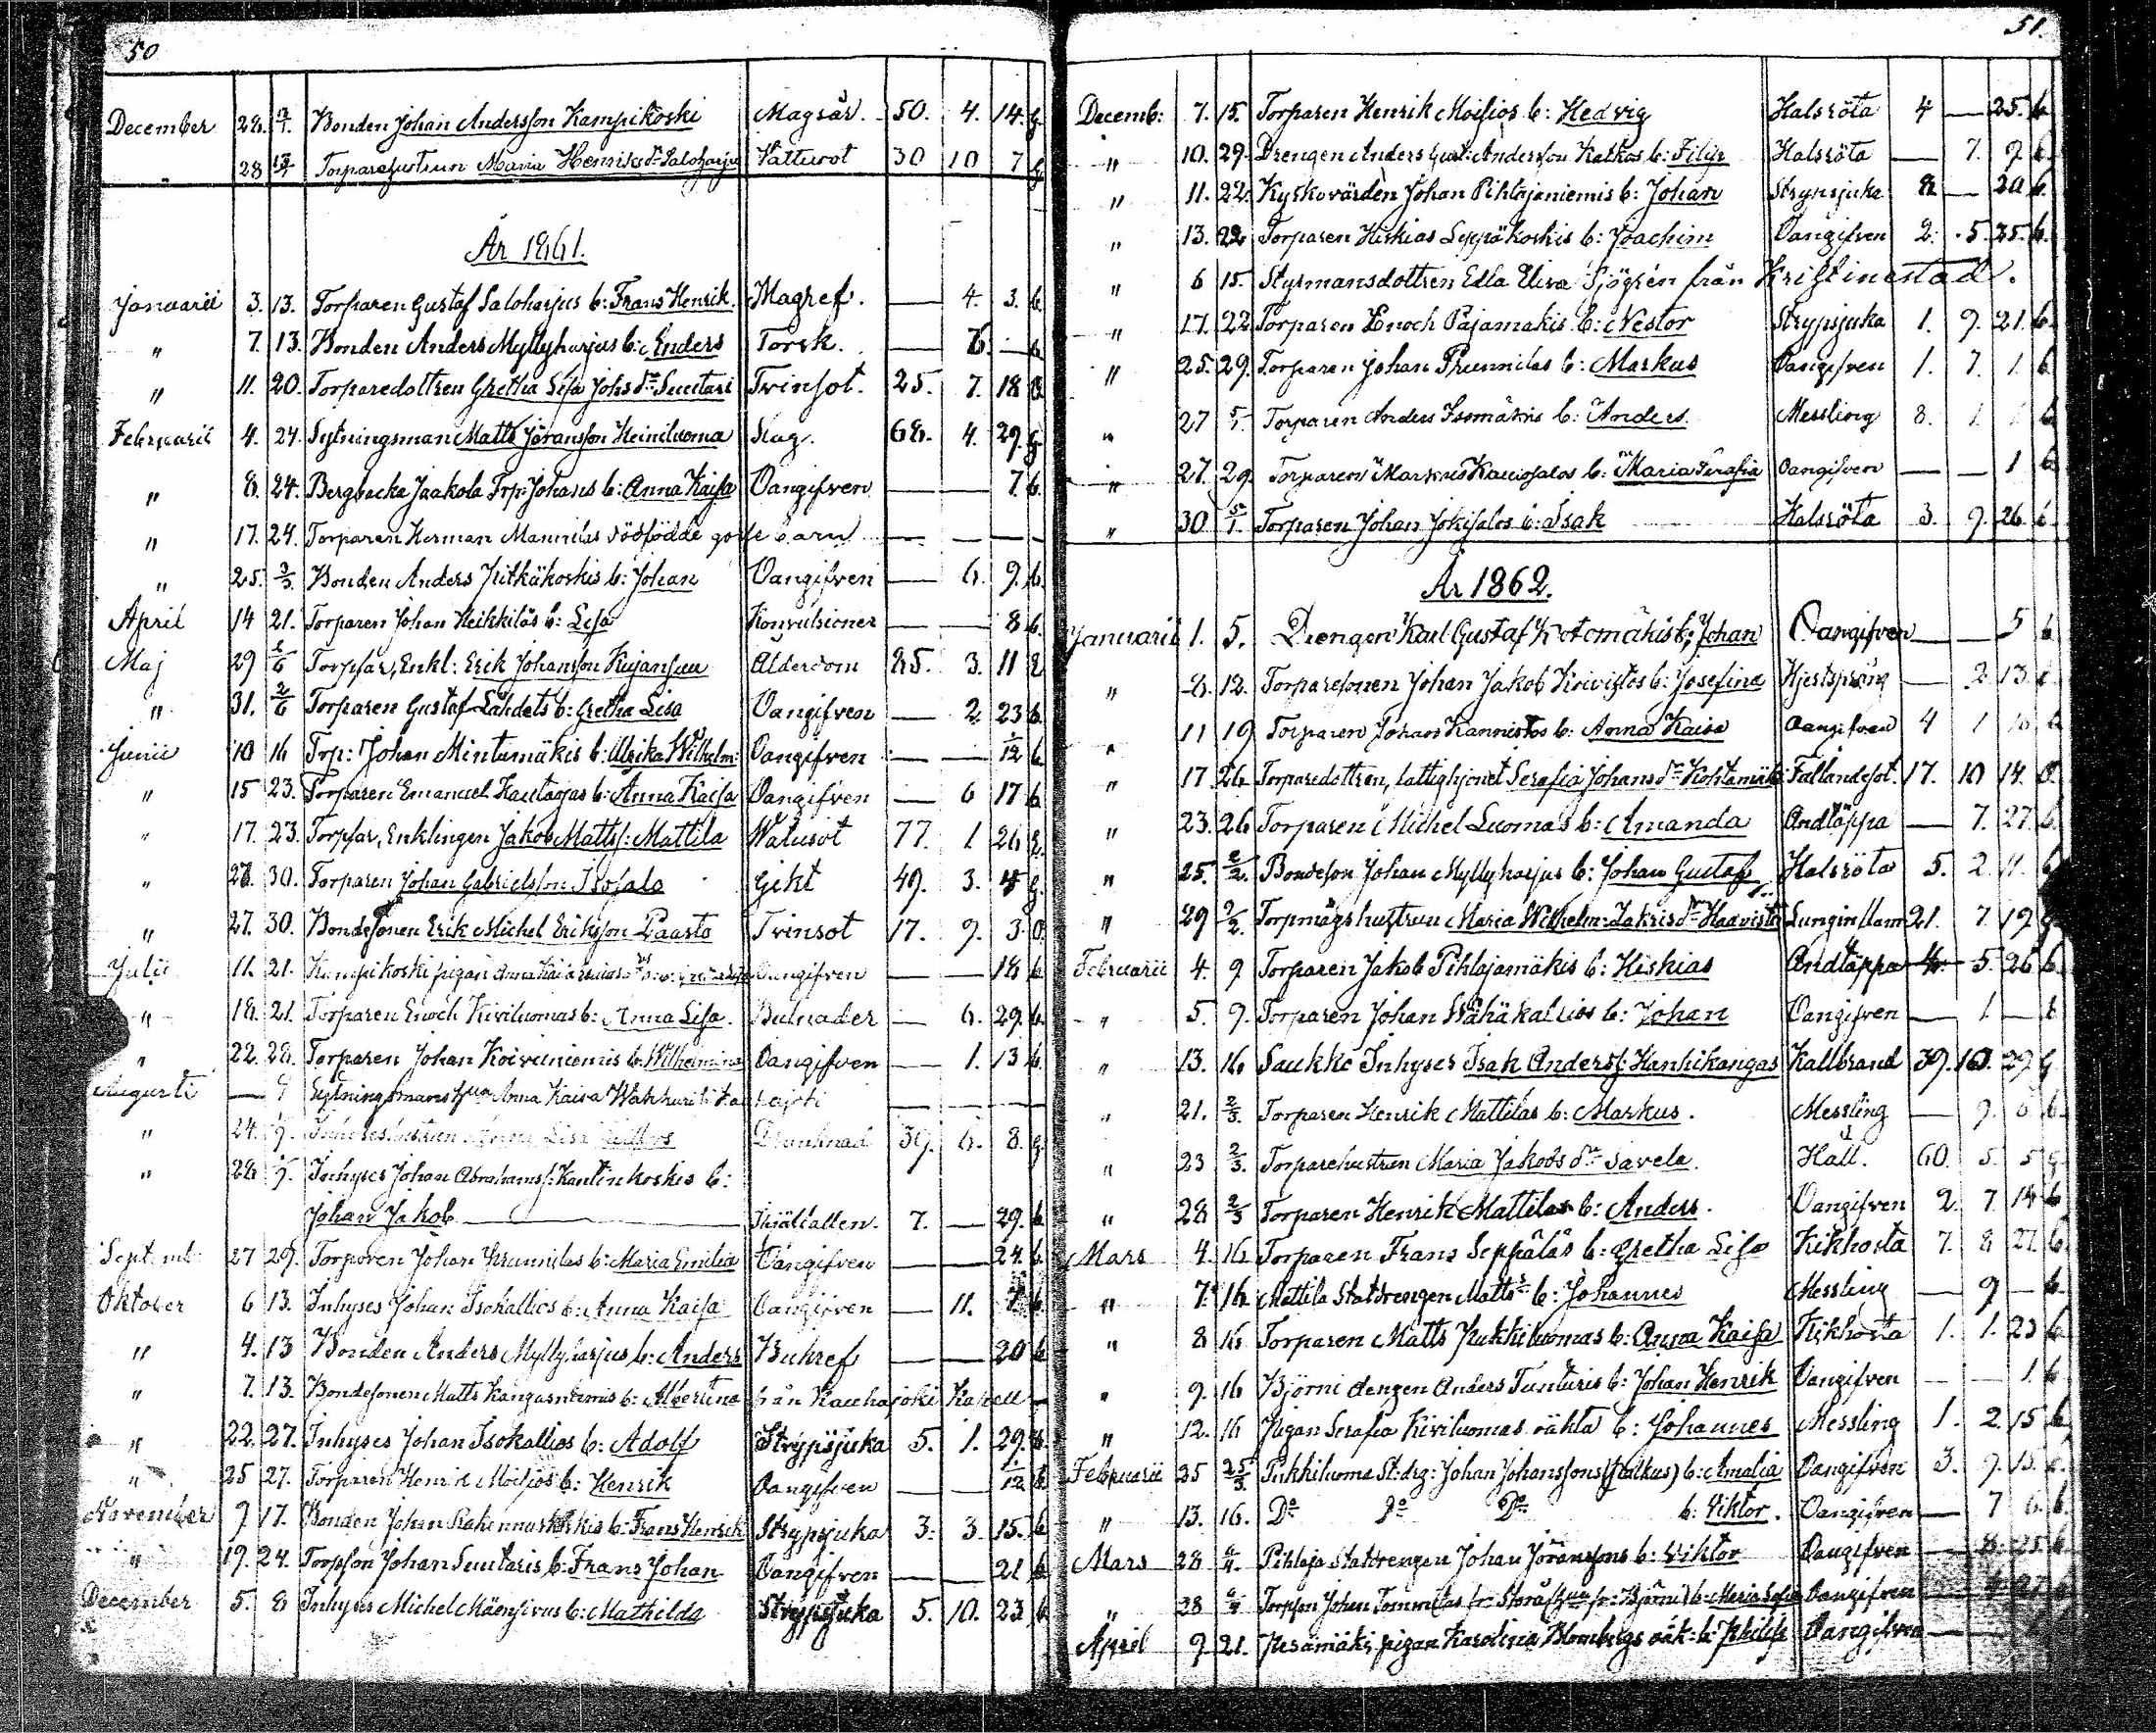 50
December 28. 13/1. Bonden Johan Andersson Kampikoski Magsår. 50. 4. 14. g.
" 28 13/1 Torparehustrun Maria Henriksdr Saloharju Vatturot 30 10 7 g
År 1861.
Januarii 3. 13. Torparen Gustaf Saloharjus b: Frans Henrik. Magref. — 4. 3. b.
" 7. 13. Bonden Anders Myllyharjus b: Enders Torsk. — 6. — b.
" 11. 20. Torparedottren Gretha Lisa Johsdr Suutari Tvinsot. 25. 7. 18 O
Februarii 4. 24. Sytningsman Matts Jöransson Heiniluoma Slag. 68. 4. 29. g.
" 8. 24. Bergbacka Jaakola Trp: Johans b: Anna Kajsa Oangifven — — 7. b.
" 17. 24. Torparen Herman Mannilas dödfödde gosse barn — — —
" 25. 3/3. Bonden Anders Pitkäkoskis b: Johan Oangifven — 6. 9. b.
April 14 21. Torparen Johan Heikkiläs b: Lisa Konvulsioner — — 8 b.
Maj 29 6/6 Torpfar, Enkl: Erik Johansson Kujansuu Ålderdom 85. 3. 11 E
" 31. 2/6 Torparen Gustaf Lähdets b: Gretha Lisa Oangifven — 2 23 b.
Junii 10 16 Trp: Johan Mintumäkis b: Ulrika Wilhelm: Oangifven — — 1/12 b
" 15 23. Torparen Emanuel Kautajas b: Anna Kaisa Oangifven — 6 17 b
" 17. 23. Torpfar, Enklingen Jakob Mattss: Mattila Watusot 77. 1 26 E.
" 28. 30. Torparen Johan Gabrielsson Isosalo Gikt 49. 3. 4 g.
" 27. 30. Bondesonen Erik Michel Eriksson Paasto Tvinsot 17. 9. 3. O.
Julii 11. 21. Kampikoski pigan Anna Kaisa Oangifven — — 18 b
" 18. 21. Torparen Enoch Kiviluomas b: Anna Lisa. Bulnader — 6. 29. b.
" 22. 28. Torparen Johan Koivuniemis b: Wilhelmina Oangifven — 1. 13 b
Augusti — 9 Sytningsmans hun Anna Kaisa
" 24. 9. Inhyseshustrun Anna Lisa Drunknad 39. 6. 8. g
" 28 9. Inhyses Johan Abrahamss: Kantinkoskis b:
Johan Jakob — Ihjälfallen. 7. — 29. b
Septemb: 27 29. Torparen Johan Prunnilas b: Maria Emilia Oangifven — — 24. b.
Oktober 6 13. Inhyses Johan Isokallios b: Anna Kaisa Oangifven — 11. 7. b
" 4. 13 Bonden Anders Myllyharjus b: Anders Bukref — — 20 b
" 7. 13. Bondesonen Matts Kangasniemis b: Albertina från Kauhajoki Kapell —
" 22. 27. Inhyses Johan Isokallios b: Adolf Strypsjuka 5. 1. 29. b
" 25 27. Torparen Henrik Moisios b: Henrik Oangifven — — 1/12 b
November 9 17. Bonden Johan Rahennuskoskis b: Frans Henrik Strypsjuka 3. 3. 15. b
" 19. 24. Torpson Johan Suutaris b: Frans Johan Oangifven — — 21 b
December 5. 8 Inhyses Michel Mäensivus b: Mathilda Strypsjuka 5. 10. 23 b
51.
Decemb: 7. 15. Torparen Henrik Moisios b: Hedvig Halsröta 4 — 25. b
" 10. 29. Drengen Anders Gust: Andersson Katkos b: Filip Halsröta — 7. 9. b
" 11. 22. Kyrkovärden Johan Pihlajaniemis b: Johan Strypsjuka 8 — 20 b.
" 13. 22 Torparen Hiskias Leppäkoskis b: Joachim Oangifven 2. 5. 25. b.
" 6 15. Styrmansdottren Edla Elisa Sjögren från Kristinestad.
" 17. 22 Torparen Enoch Pajamäkis b: Nestor Strypsjuka 1. 9. 21. b
" 25. 29. Torparen Johan Prunnilas b: Markus Oangifven 1. 7. 1. b
" 27 5/1 Torparen Anders Isomäkis b: Anders. Messling 8. 1. 1 b
" 27. 29. Torparen Markus Kauosalos b: Maria Serafia Oangifven — — 1 b.
" 30 5/1. Torparen Johan Jokisalos b: Isak Halsröta 3. 9. 26. b
År 1862.
Januarii 1. 5. Drengen Karl Gustaf Kotomäkis b: Johan Oangifven — — 5 b
" 8. 12. Torparesonen Johan Jakob Koivistos b: Josefina Hjertsprång — 2. 13. b
" 11 19 Torparen Johan Kannistos b: Anna Kaisa Oangifven 4 1 10 b
" 17 26 Torparedottren, fattighjonet Serafia Johansdr Kohtamäki Fallandesot. 17. 10 14. O.
" 23. 26 Torparen Michel Luomas b: Amanda Andtäppa — 7. 27. b.
" 25. 2/2. Bondeson Johan Myllyharjus b: Johan Gustaf Halsröta 5. 2. 11. b
" 29 2/2. Torpmågshustrun Maria Wilhelm: Zakrisdr Haavisto Lunginflam 21. 7 19 g
Februarii 4. 9 Torparen Jakob Pihlajamäkis b: Hiskias Andtäppa 4. 5. 26 b
" 5. 9. Torparen Johan Wähäkallios b: Johan Oangifven — 1 — b
" 13. 16 Saukko Inhyses Isak Anderss: Hanhikangas Kallbrand 39. 10. 29 g.
" 21. 2/3. Torparen Henrik Mattilas b: Markus. Messling — 9. 6 b.
" 23 2/3. Torparehustrun Maria Jakobsdr Savela. Håll. 60. 5. 5 g
" 28 2/3 Torparen Henrik Mattilas b: Anders. Oangifven 2. 7. 14 b
Mars 4. 16 Torparen Frans Seppäläs b: Gretha Lisa Kikhosta 7. 8 27. b.
" 7. 16. Mattila Statdrengen Matts b: Johannes Messling — 9 — b.
" 8 16 Torparen Matts Pukkiluomas b: Anna Kaisa Kikhosta 1. 1. 23 b
" 9. 16 Björni drengen Anders Tunturis b: Johan Henrik Oangifven — — 1. b
" 12. 16 Pigan Serafia Kiviluomas oäkta b: Johannes Messling 1. 2. 15 b
Februarii 25 25/3 Pukkiluoma St:drg: Johan Johanssons b: Amalia Oangifven 3. 9. 15. b.
" 13. 16. Do Do Do b: Viktor. Oangifven — 7 6. b.
Mars 28 6/4. Pihlaja Statdrengen Johan Jöranssons b: Viktor Oangifven — 8. 25. b
" 28 6/4 Torpson Johan Tommilas fr: Storå b: Maria Sofia Oangifven —
April 9. 21. Pesämäki pigan Karolina Blombergs oäk: b: Philip Oangifven —